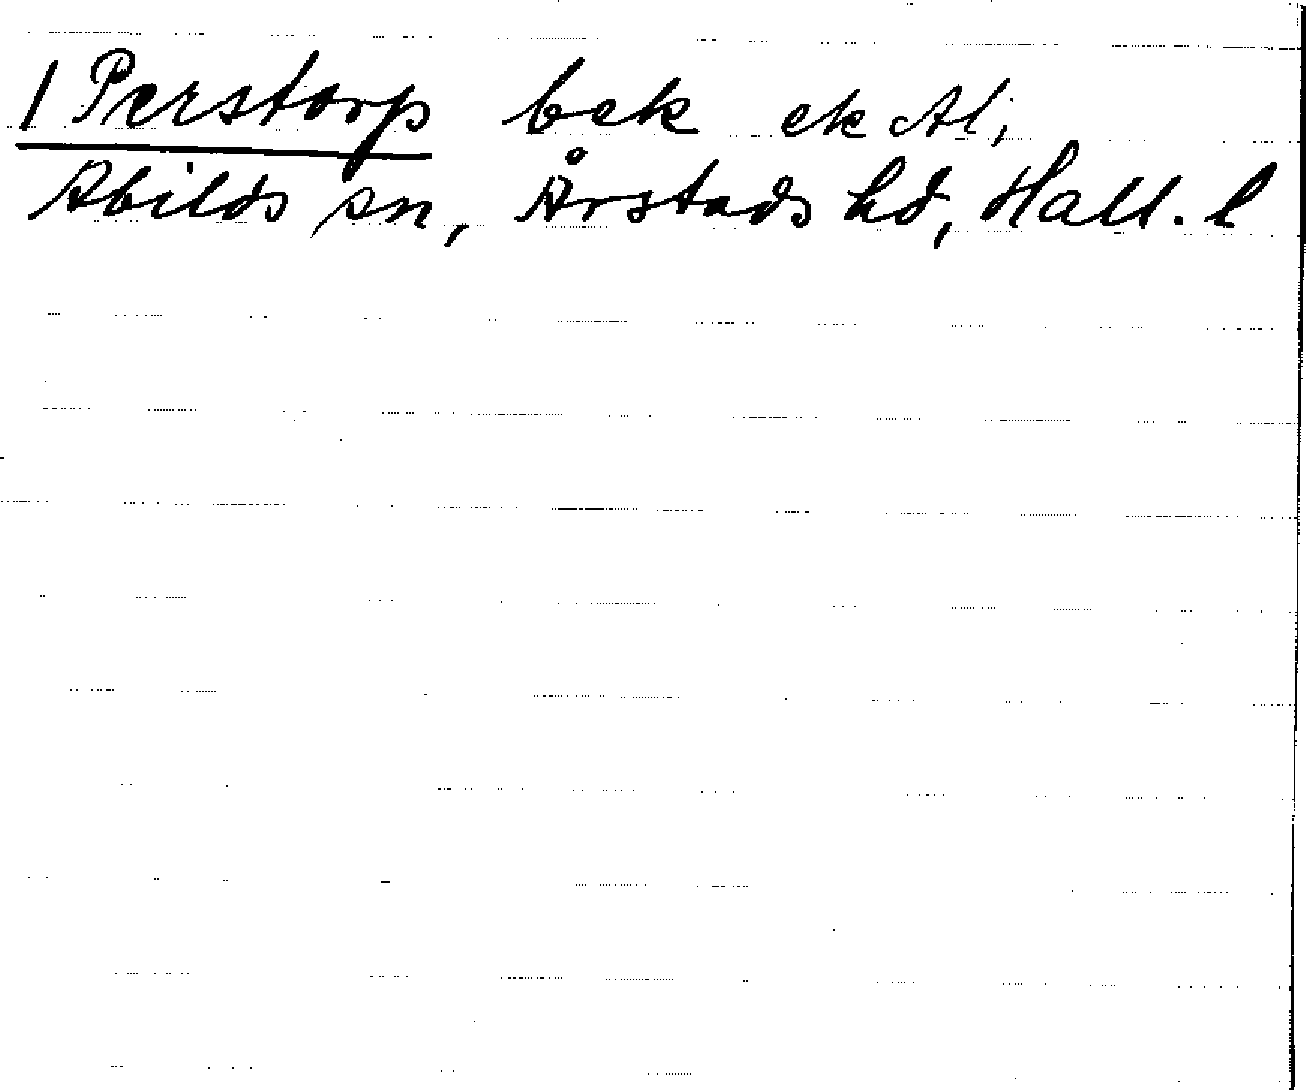 1 Perstorp bek ek Al,
Abilds sn, Årstads hd, Hall. l